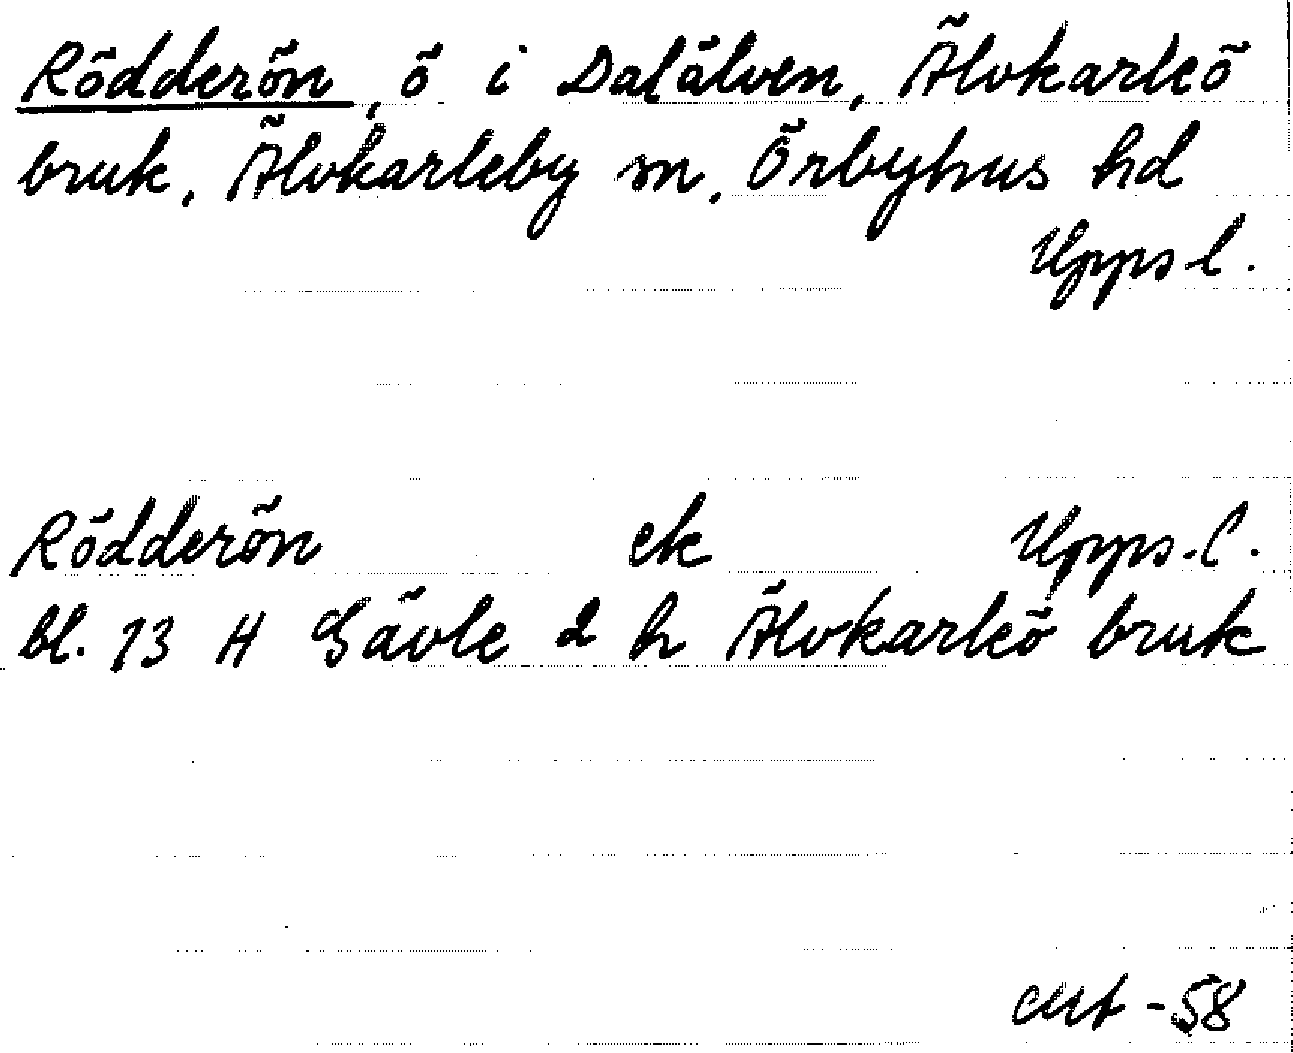 Rödderön, ö i Dalälven, Älvkarleö
bruk, Älvkarleby sn, Örbyhus hd
Upps l.
Rödderön ek Upps. l.
bl. 13 H Gävle d h Älvkarleö bruk
-58